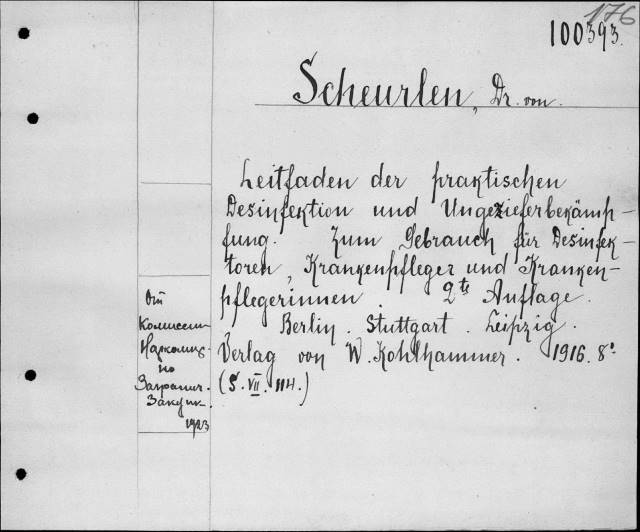 176
100393.
Scheurlen, Dr. von.
Leitfaden der praktischen
Desinfektion und Ungezieferbekämp-
fung. Zum Gebrauch für Desinfek-
toren, Krankenpfleger und Kranken-
pflegerinnen. 2te Auflage.
Berlin. Stuttgart. Leipzig.
Verlag von W. Kohlhammer. 1916. 8°
(S. VII. 114.)
От
Комиссии
по
Загранич.
Закупк.
1923